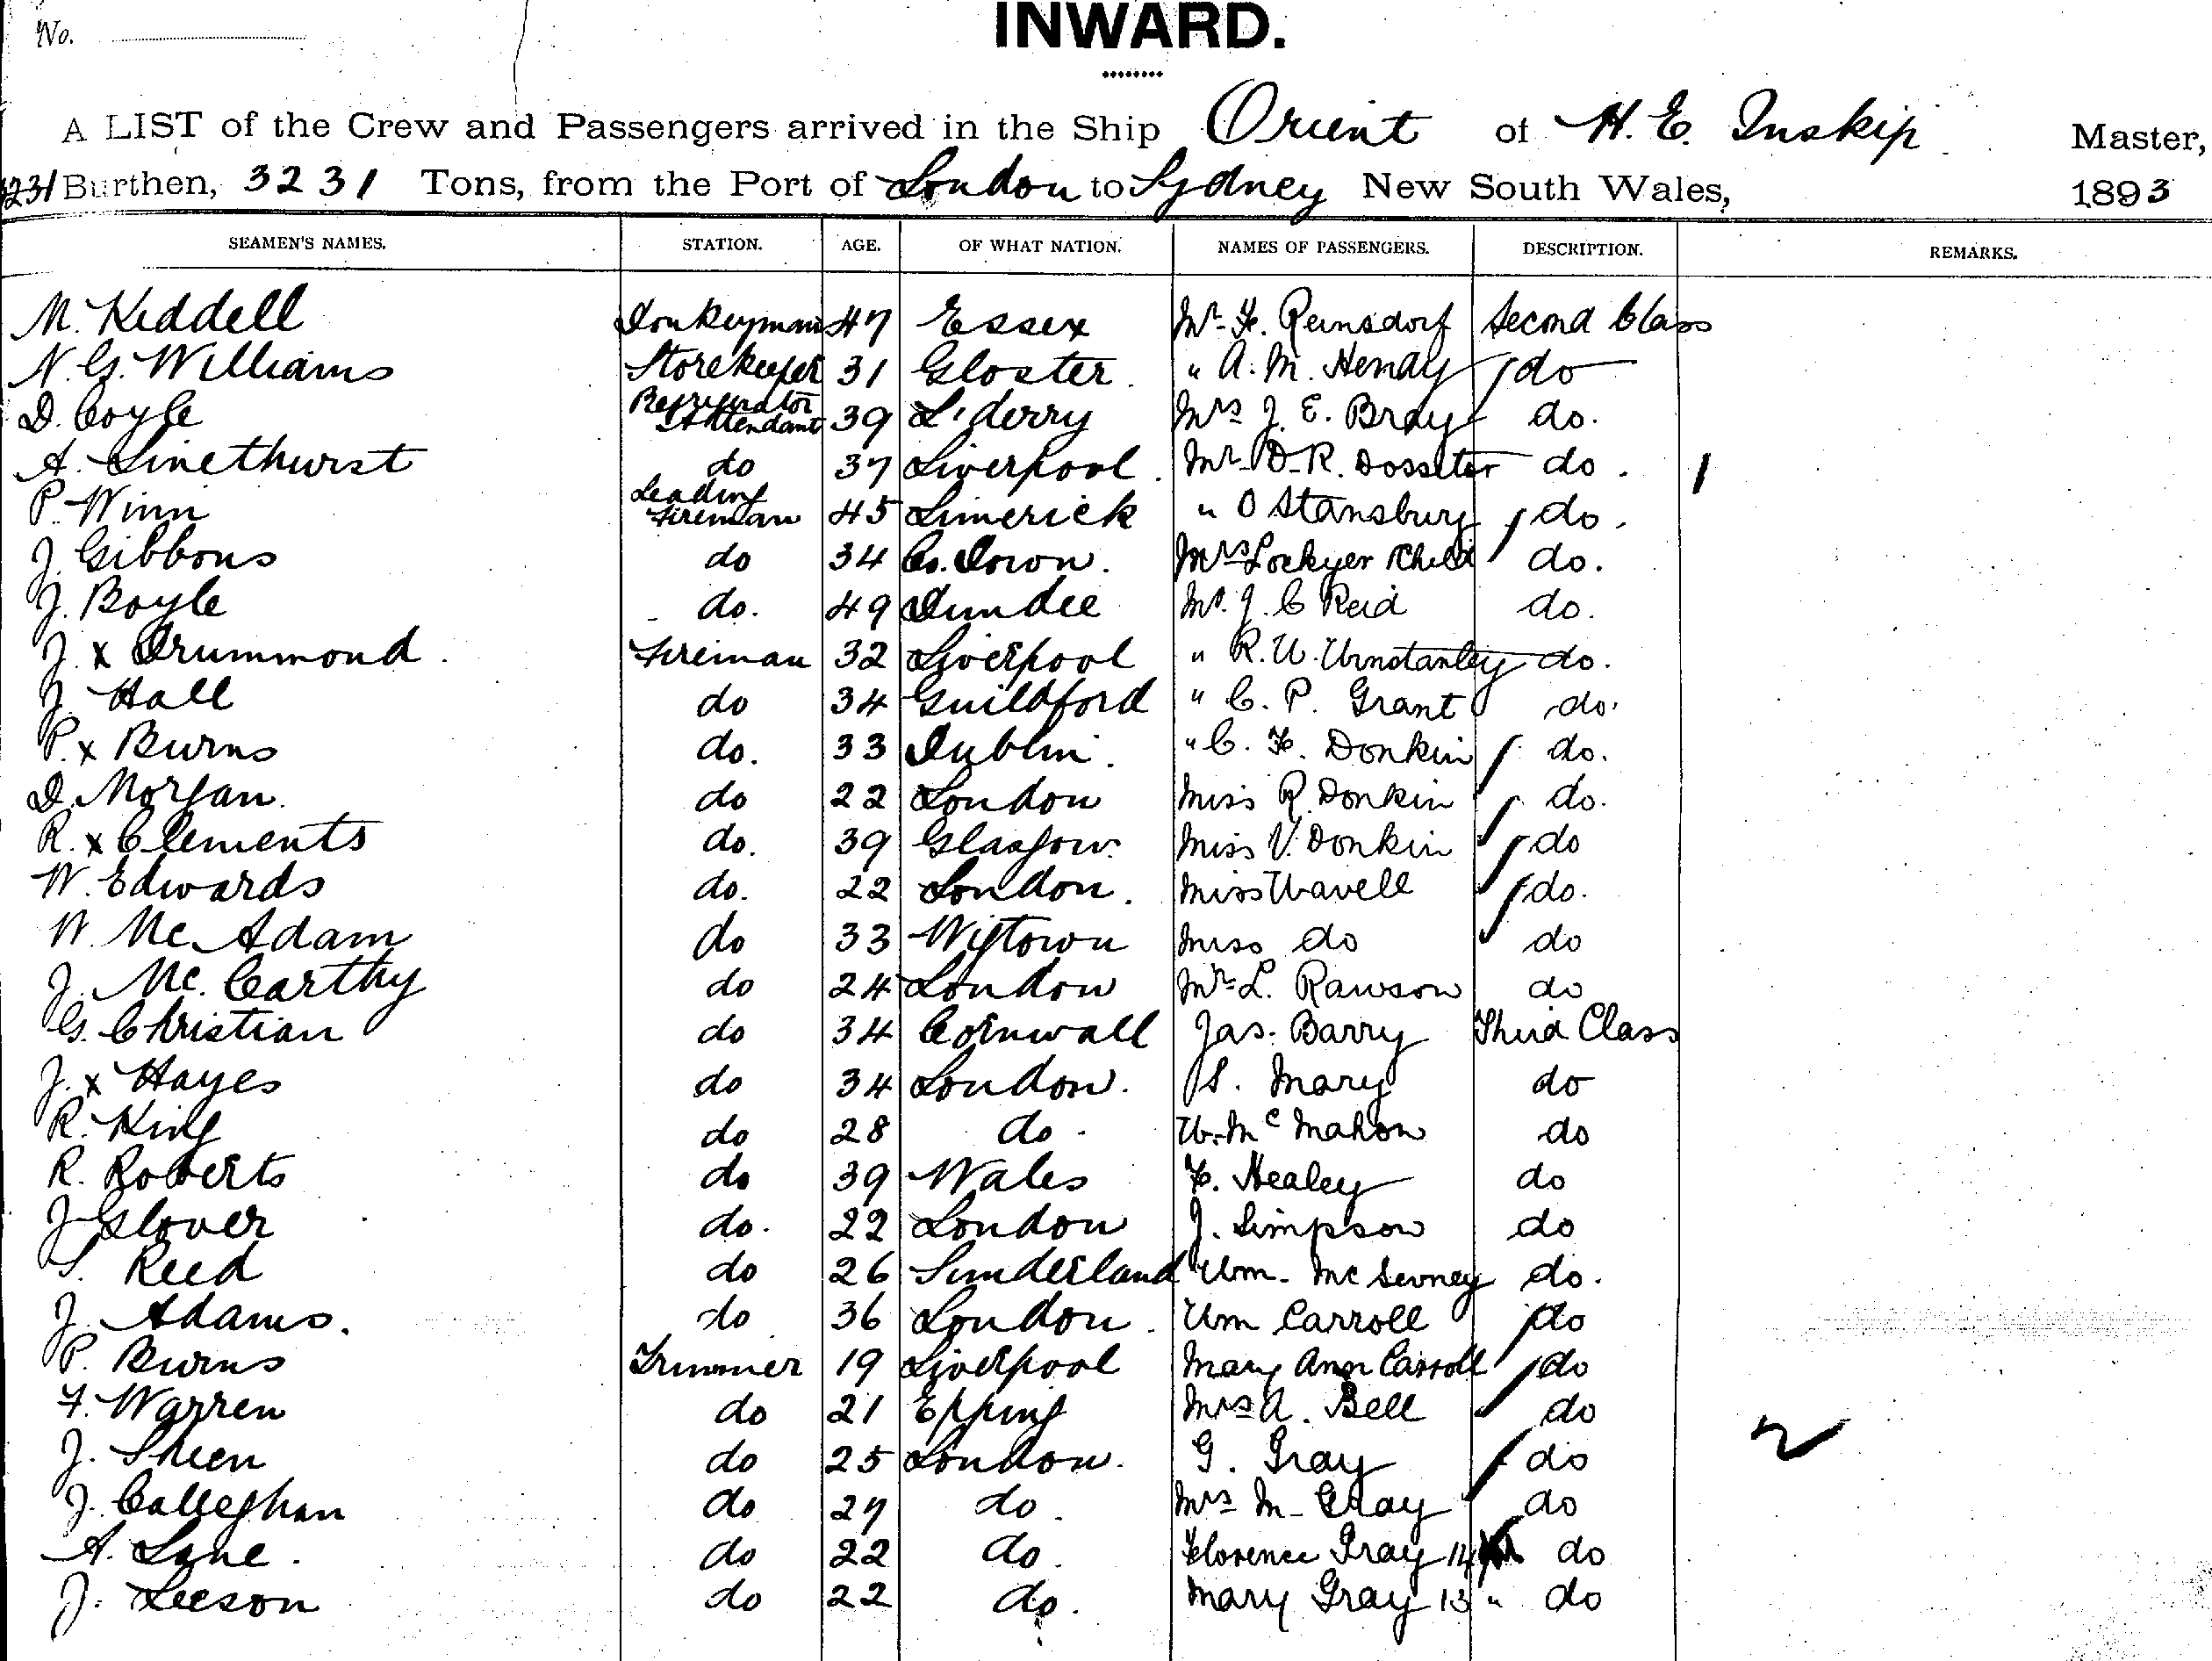 No.
INWARD.
A LIST of the Crew and Passengers arrived in the Ship Orient of H. E. Inskip Master,
3231 Burthen, 3231 Tons, from the Port of London to Sydney New South Wales, 1893
SEAMEN'S NAMES. STATION. AGE. OF WHAT NATION. NAMES OF PASSENGERS. DESCRIPTION. REMARKS.
M. Keddell Donkeyman 47 Essex Mr. F. Reinsdorf Second Class
N. G. Williams Storekeeper 31 Gloster " A. M. Hendy do
D. Coyle Refrigerator Attendant 39 L'derry Mrs J. E. Bray do.
A. Linethurst do 37 Liverpool Mr D. R. Dosseter do. 1
P. Winn Leading Fireman 45 Limerick " O Stansbury do.
J. Gibbons do 34 Co. Down. Mrs Lockyer & Child do.
J. Boyle do. 49 Dundee Mr. J. C Reid do.
J. x Drummond. Fireman 32 Liverpool " R. W. Winstanley do.
J. Hall do 34 Guildford " C. P. Grant do.
P. x Burns do. 33 Dublin. " C. F. Donkin do.
D. Morgan. do 22 London Miss R. Donkin do.
R. x Clements do. 39 Glasgow. Miss V. Donkin do
W. Edwards do. 22 London. Miss Wavell do.
W. Mc Adam do 33 Wigtown Miss do do
J. Mc. Carthy do 24 London Mr L. Rawson do
G. Christian do 34 Cornwall Jas. Barry Third Class
J. x Hayes do 34 London. S. Mary do
R. King do 28 do. W. Mc Mahon do
R. Roberts do 39 Wales F. Healey do
J Glover do. 22 London J. Simpson do
S. Reed do 26 Sunderland Wm. Mc do.
J. Adams. do 36 London. Wm Carroll do
P. Burns Trimmer 19 Liverpool Mary Ann Carroll do
F. Warren do 21 Epping Mrs A. Bell do 2
J. Sheen do 25 London. G. Gray do
J. Calleghan do 27 do. Mrs M. Gray do
A. Lane. do 22 do. Florence Gray 14 do
J. Leeson do 22 do. Mary Gray 13 " do